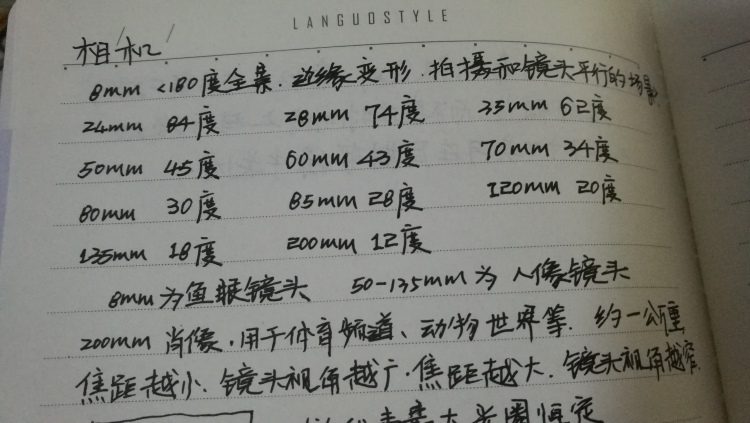 LANGUOSTYLE
相机
8mm <180度全景.边缘变形.拍摄和镜头平行的场景.
24mm 84度 28mm 74度 35mm 62度
50mm 45度 60mm 43度 70mm 34度
80mm 30度 85mm 28度 120mm 20度
135mm 18度 200mm 12度
8mm为鱼眼镜头 50-135mm为人像镜头
200mm 肖像.用于体育频道、动物世界等.约一公里
焦距越小.镜头视角越广.焦距越大.镜头视角越窄.
大光圈恒定